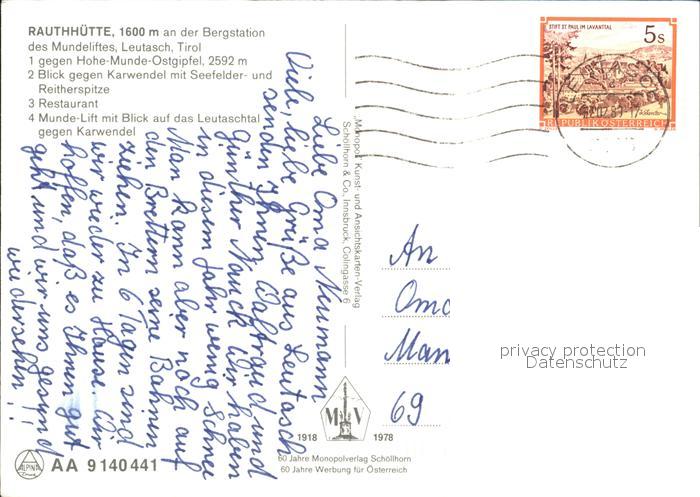 RAUTHHÜTTE, 1600 m an der Bergstation
des Mundeliftes, Leutasch, Tirol
1 gegen Hohe-Munde-Ostgipfel, 2592 m
2 Blick gegen Karwendel mit Seefelder- und
Reitherspitze
3 Restaurant
4 Munde-Lift mit Blick auf das Leutaschtal
gegen Karwendel
Liebe Oma Neumann
Viele, liebe Grüße aus Leutasch
senden Ihnen Waltraud und
Günther Mauck. Wir haben
in diesem Jahr wenig Schnee
Man kann aber noch auf
den Brettern seine Bahnen
ziehen. In 6 Tagen sind
wir wieder zu Hause. Wir
hoffen, daß es Ihnen gut
geht und wir uns gesund
wiedersehen!!
„Monopol" Kunst- und Ansichtskarten-Verlag
Schöllhorn & Co., Innsbruck, Colingasse 6
STIFT ST. PAUL IM LAVANTTAL
5 S
REPUBLIK ÖSTERREICH
An
Oma
Man
69
privacy protection
Datenschutz
M V
1918 1978
60 Jahre Monopolverlag Schöllhorn
60 Jahre Werbung für Österreich
ALPINA
AA 9140441